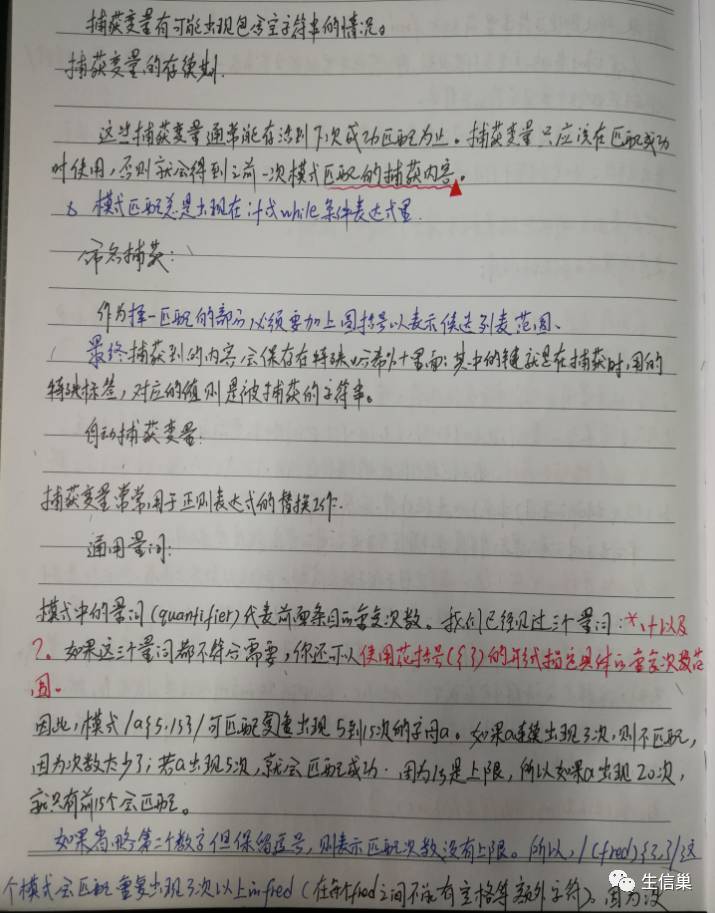 捕获变量有可能出现包含空字符串的情况。
捕获变量的存续期.
这些捕获变量通常能存活到下次成功匹配为止。捕获变量只应该在匹配成功
时使用，否则就会得到之前一次模式匹配的捕获内容。
模式匹配总是出现在if或while条件表达式里.
命名捕获：
作为择一匹配的部分，必须要加上圆括号以表示候选列表范围、
最终捕获到的内容会保存在特殊哈希%+里面：其中的键就是在捕获时,用的
特殊标签，对应的值则是被捕获的字符串。
自动捕获变量:
捕获变量常常用于正则表达式的替换工作.
通用量词:
模式中的量词(quantifier)代表前面条目的重复次数。我们已经见过三个量词：*、+以及
?。如果这三个量词都不符合需要，你还可以使用花括号({})的形式指定具体的重复次数范
围。
因此，模式/a{5,15}/可匹配重复出现5到15次的字母a。如果a连续出现3次，则不匹配，
因为次数太少了；若a出现5次，就会匹配成功.因为15是上限，所以如果a出现20次，
就只有前15个会匹配。
如果省略第二个数字但保留逗号，则表示匹配次数没有上限。所以，/(fred){3,}/这
个模式会匹配重复出现3次以上的fred(在每个fred之间不能有空格等额外字符)。因为没
生信巢